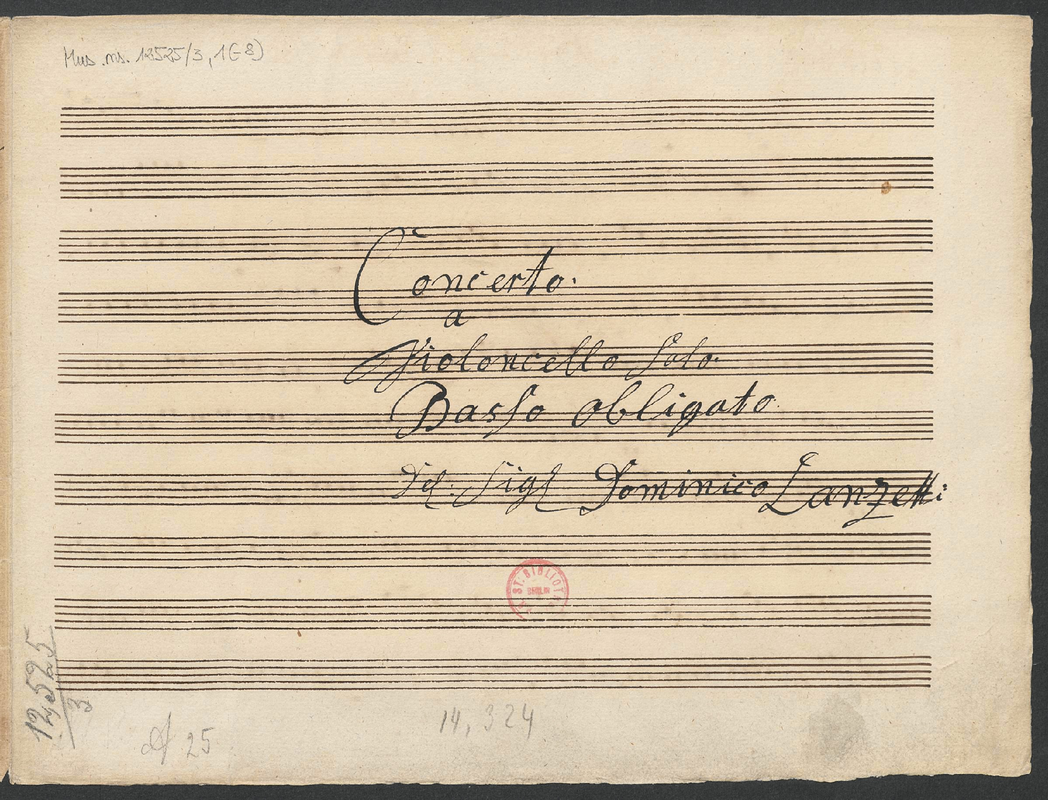 Mus. ms. 12525/3, 1(-8)
Concerto.
a
Violoncello Solo.
Basso obligato.
Del Sigl Dominico Lanzetti
ST. BIBLIOT
BERLIN
12,525
3
25
14, 324